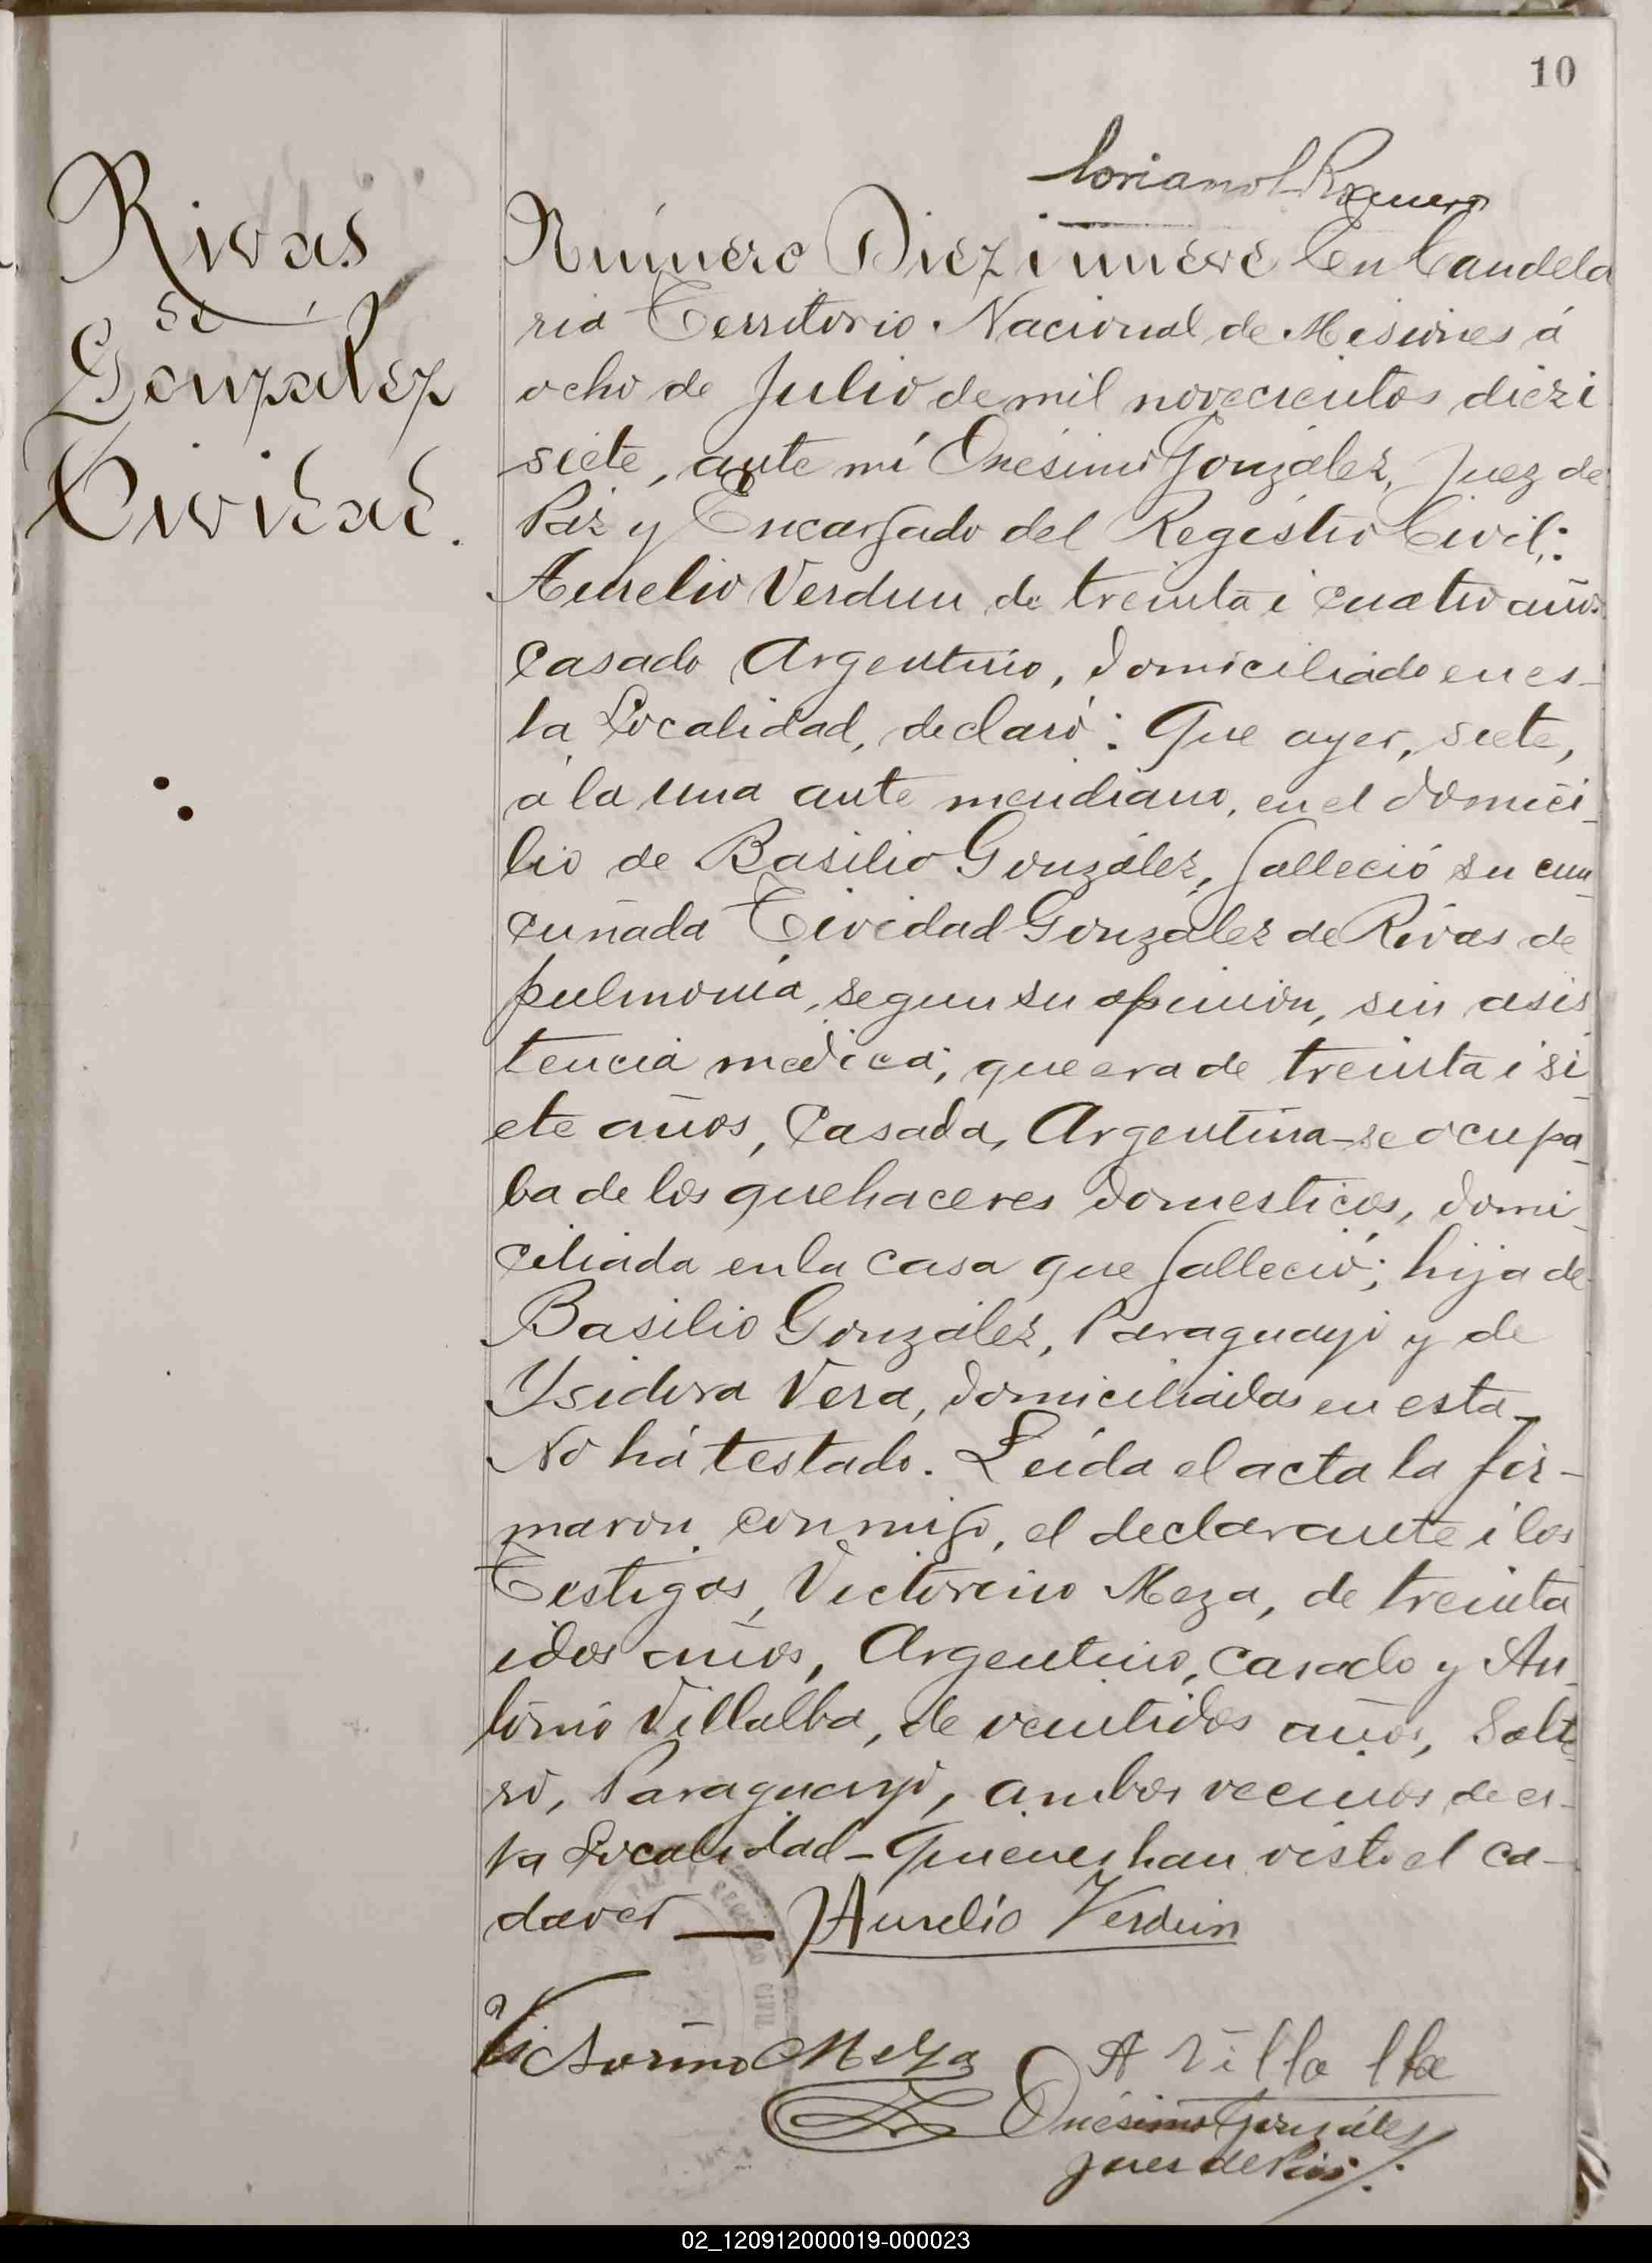 10
Rivas
de
González
Tividad.
Romero
Número Diez i nueve En Candela
ria Territorio Nacional de Misiones á
ocho de Julio de mil novecientos diezi
siete, ante mí Onésimo González, Juez de
Paz y Encargado del Registro Civil;:
Aurelio Verdun de treinta i cuatro años
Casado Argentino, domiciliado en es-
ta Localidad, declaró: Que ayer, siete,
á la una ante meridiano, en el domici-
lio de Basilio González, falleció su cun-
cuñada Tividad González de Rivas de
pulmonía, segun su opinión, sin asis
tencia medica; que era de treinta i si-
ete años, Casada, Argentina-se ocupa-
ba de los quehaceres domesticos, domi-
ciliada en la casa que falleció; hija de
Basilio González, Paraguayo y de
Ysidora Vera, domiciliadas en esta-
No há testado. Leída el acta la fir-
maron conmigo, el declarante i los
Testigos, Victorino Meza, de treinta
idos años, Argentino, Casado y An-
tonio Villalba, de veintidos años, Solte-
ro, Paraguayo, ambos vecinos de es-
ta Localidad-Quienes han visto el ca-
daver — Aurelio Verdun
REGISTRO CIVIL
Victorino Meza
A Villalba
Onésimo González
Juez de Paz
02_120912000019-000023